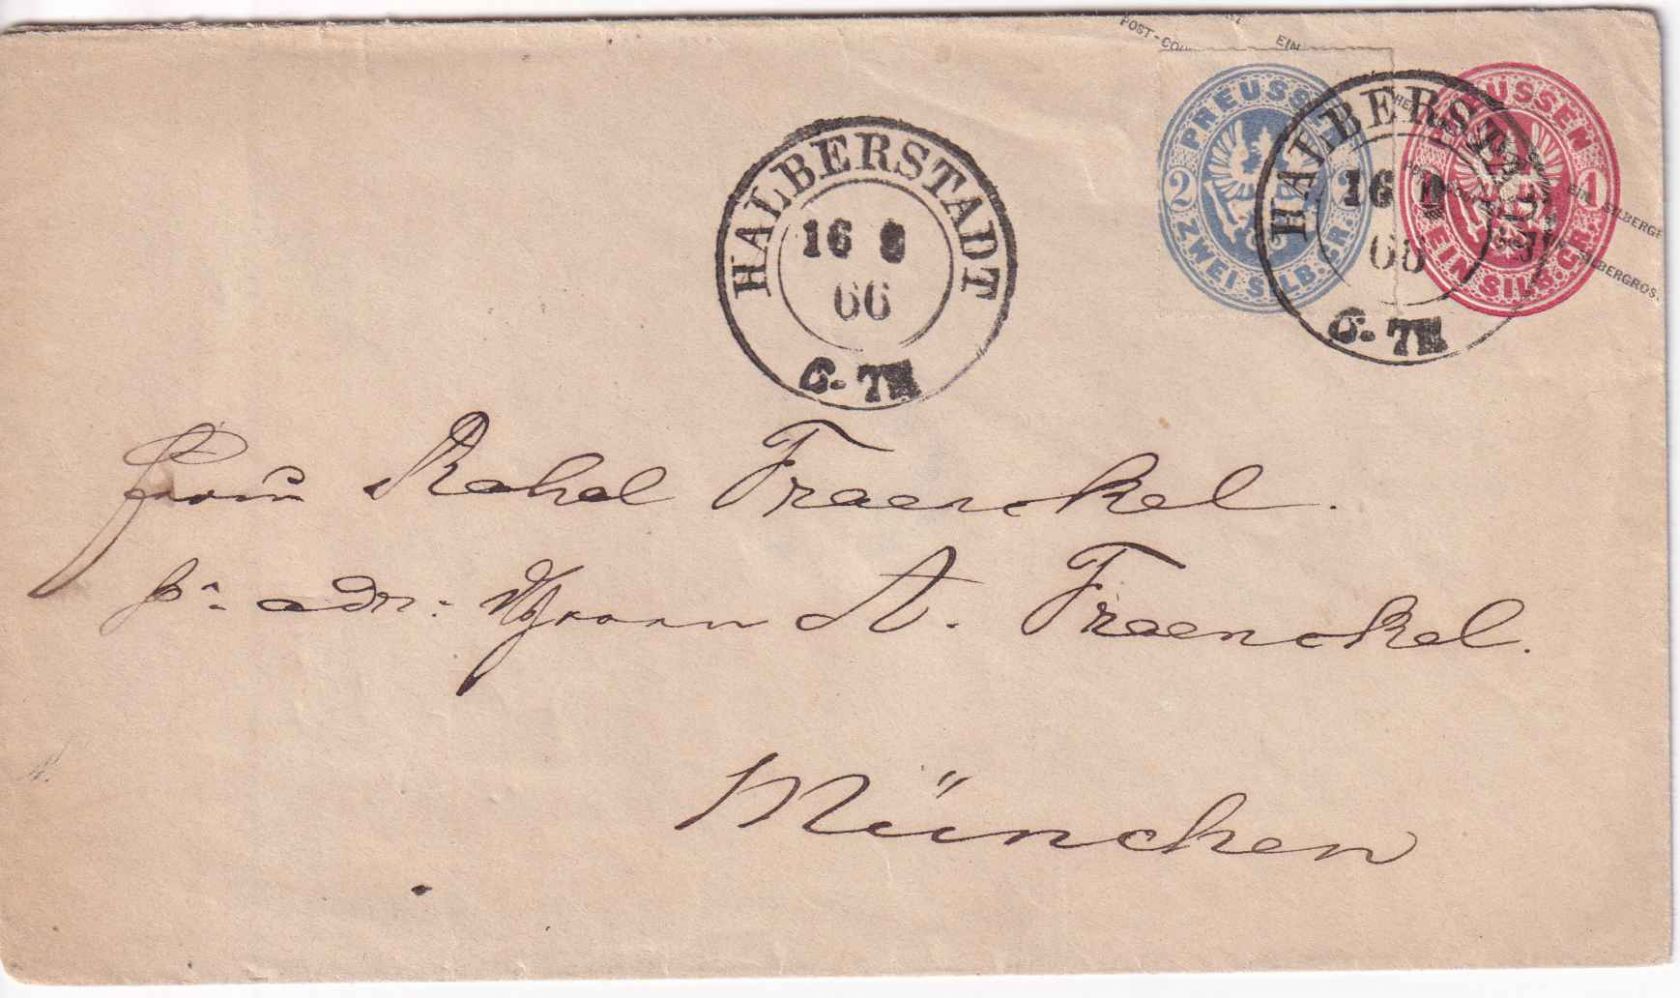 POST-COU
EIN
PREUSS
2
ZWEI SILB. GR.
USSEN
1
EIN SILB. GR.
SILBERGR
SILBERGROS
HALBERSTADT
16
66
6-7
HALBERSTADT
16 8
66
6-7
Frau Rahel Fraenckel.
pr. adr: Herrn A. Fraenckel.
München